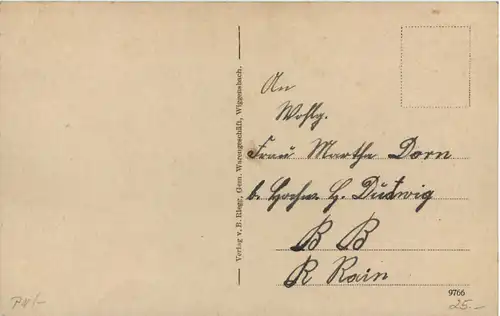 Verlag v. B. Riegg, Gem. Warengeschäft, Wiggensbach.
An
Wohlg.
Frau Martha Dorn
b. Hochw. H. Dudwig
B B
R Rain
9766
25.-